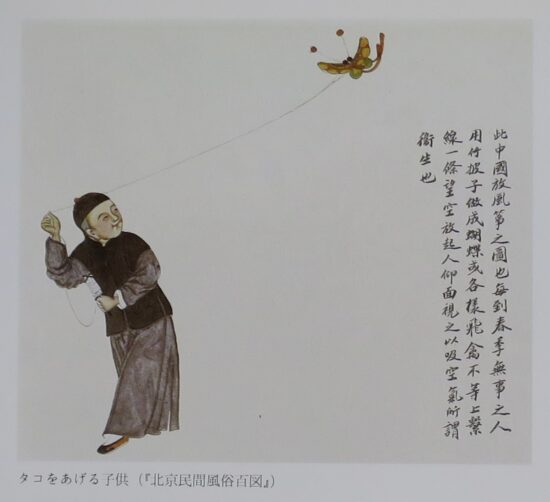 此中國放風筝之圖也每到春季無事之人
用竹披子做成蝴蝶或各樣飛禽不等上繫
線一條望空放起人仰面視之以吸空氣所謂
衞生也
タコをあげる子供（『北京民間風俗百図』）